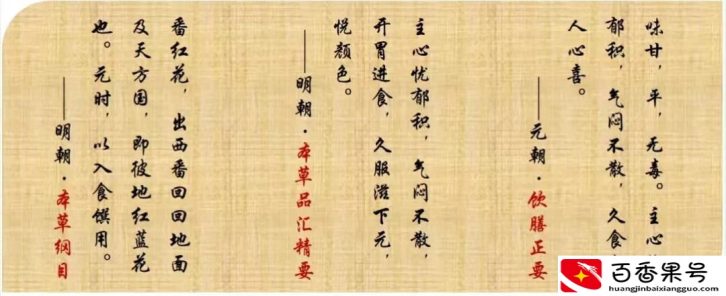 味甘，平，无毒。主心
郁积，气闷不散，久食
人心喜。
——元朝·饮膳正要
主心忧郁积，气闷不散，
开胃进食，久服滋下元，
悦颜色。
——明朝·本草品汇精要
番红花，出西番回回地面
及天方国，即彼地红蓝花
也。元时，以入食馔用。
——明朝·本草纲目
百香果号
huangjinbaixiangguo.com